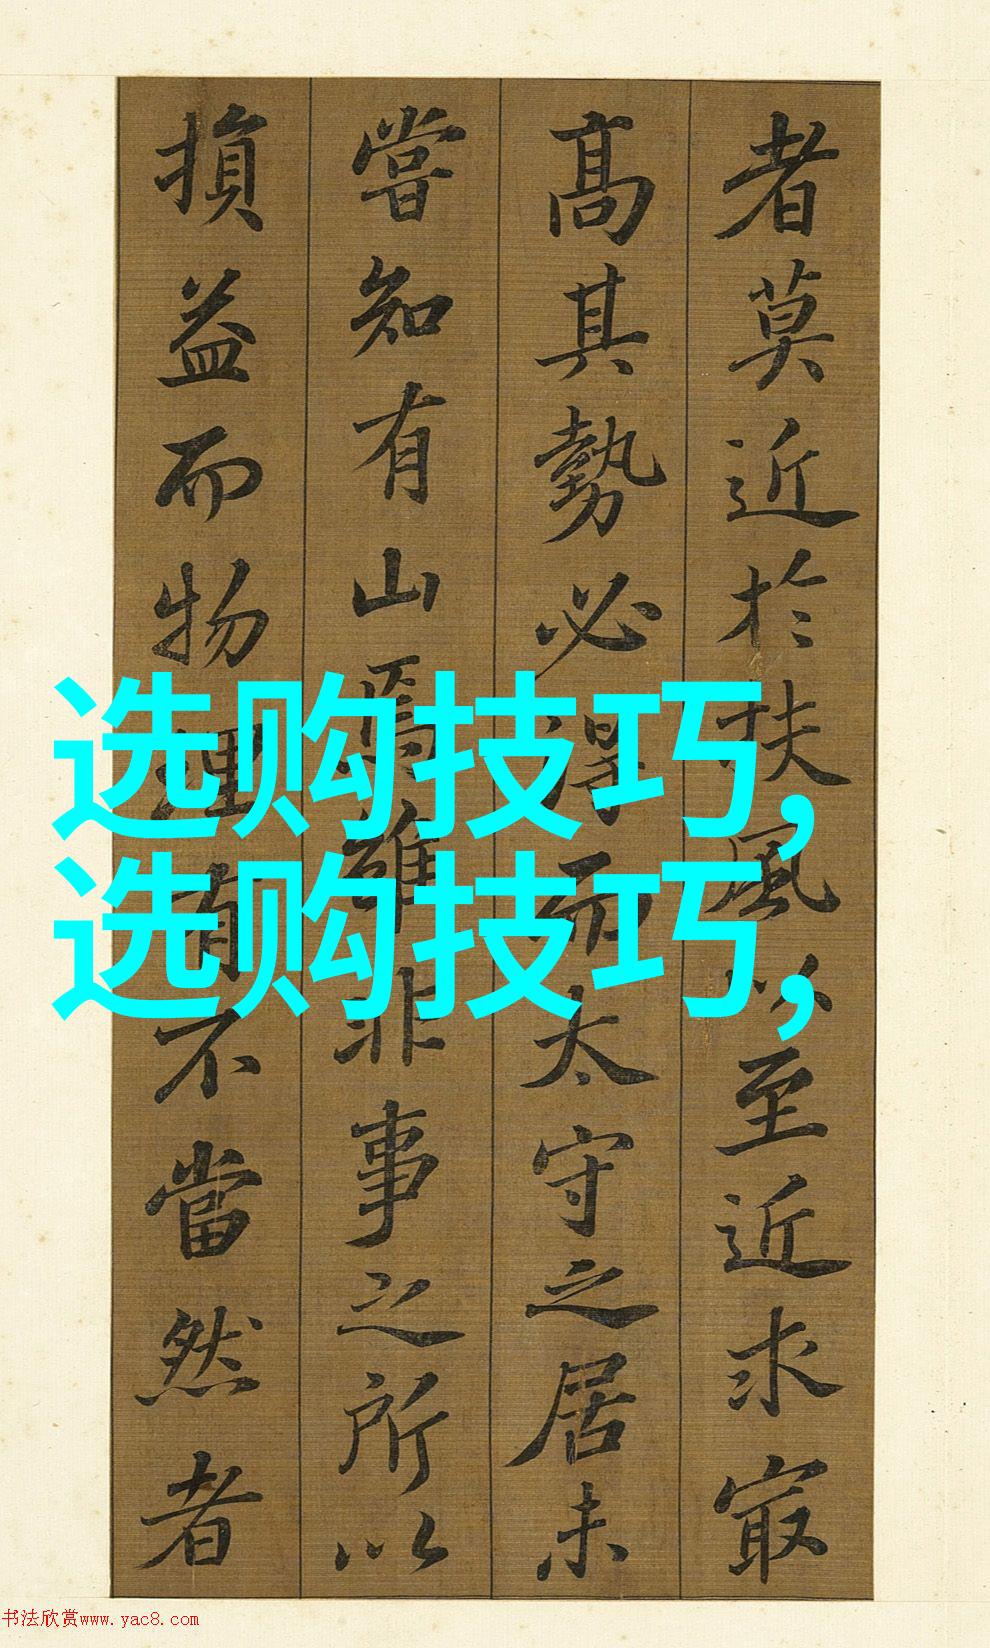 者莫近於扶風以至近求最
高其勢必得而太守之居未
嘗知有山焉雖非事之所以
損益而物理有不當然者
选购技巧,
选购技巧,
书法欣赏www.yac8.com